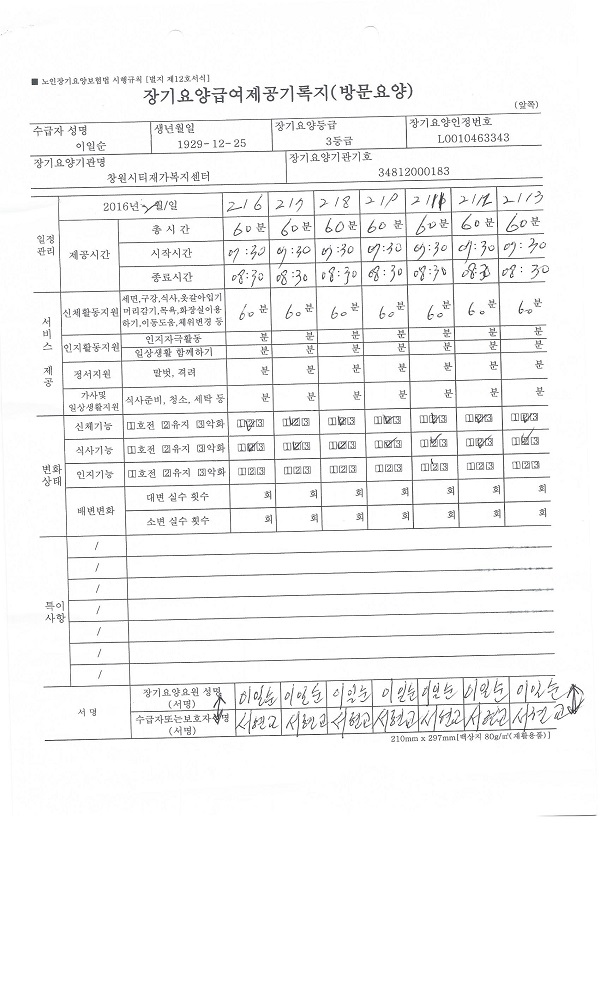 ■ 노인장기요양보험법 시행규칙 [별지 제12호서식]
장기요양급여제공기록지(방문요양)
(앞쪽)
수급자 성명 생년월일 장기요양등급 장기요양인정번호
이일순 1929-12-25 3등급 L0010463343
장기요양기관명 장기요양기관기호
창원시티재가복지센터 34812000183
일정관리 2016년 월/일 2/6 2/7 2/8 2/9 2/11 2/12 2/13
제공시간 총 시 간 60분 60분 60분 60분 60분 60분 60분
시작시간 07:30 07:30 07:30 07:30 07:30 07:30 07:30
종료시간 08:30 08:30 08:30 08:30 08:30 08:30 08:30
서비스 제공
신체활동지원 세면,구강,식사,옷갈아입기 60분 60분 60분 60분 60분 60분 60분
머리감기,목욕,화장실이용
하기,이동도움,체위변경 등
인지활동지원 인지자극활동 분 분 분 분 분 분 분
일상생활 함께하기 분 분 분 분 분 분 분
정서지원 말벗, 격려 분 분 분 분 분 분 분
가사및
일상생활지원 식사준비, 청소, 세탁 등 분 분 분 분 분 분 분
변화상태
신체기능 1호전 2유지 3악화 123 123 123 123 123 123 123
식사기능 1호전 2유지 3악화 123 123 123 123 123 123 123
인지기능 1호전 2유지 3악화 123 123 123 123 123 123 123
배변변화 대변 실수 횟수 회 회 회 회 회 회 회
소변 실수 횟수 회 회 회 회 회 회 회
특이사항
/
/
/
/
/
/
/
서 명 장기요양요원 성명 이일순 이일순 이일순 이일순 이일순 이일순 이일순
(서명)
수급자또는보호자성명 서현교 서현교 서현교 서현교 서현교 서현교 서현교
(서명)
210mm x 297mm[백상지 80g/㎡(재활용품)]